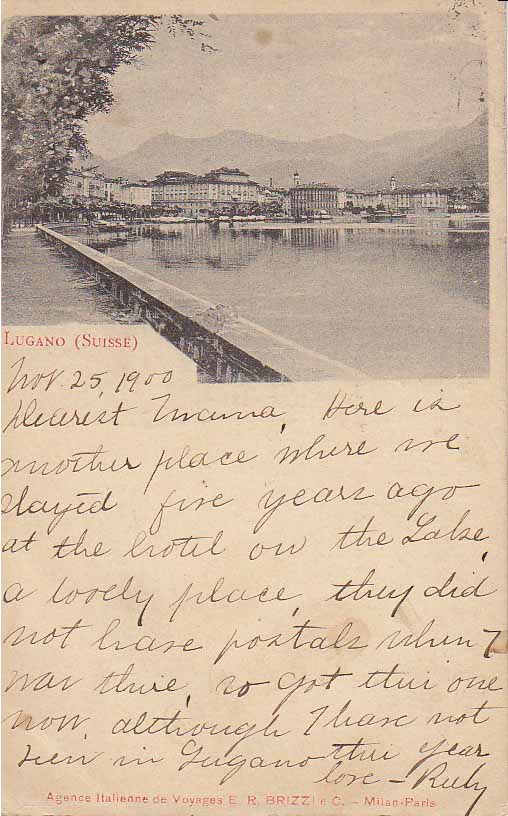 LUGANO (SUISSE)
Nov. 25, 1900
Dearest Mama, Here is
another place where we
played five years ago
at the hotel on the Lake,
a lovely place, they did
not have postals when I
was there, so got this one
now, although I have not
been in Lugano this year
love - Ruby
Agence Italienne de Voyages E. R. BRIZZI e C. - Milan-Paris